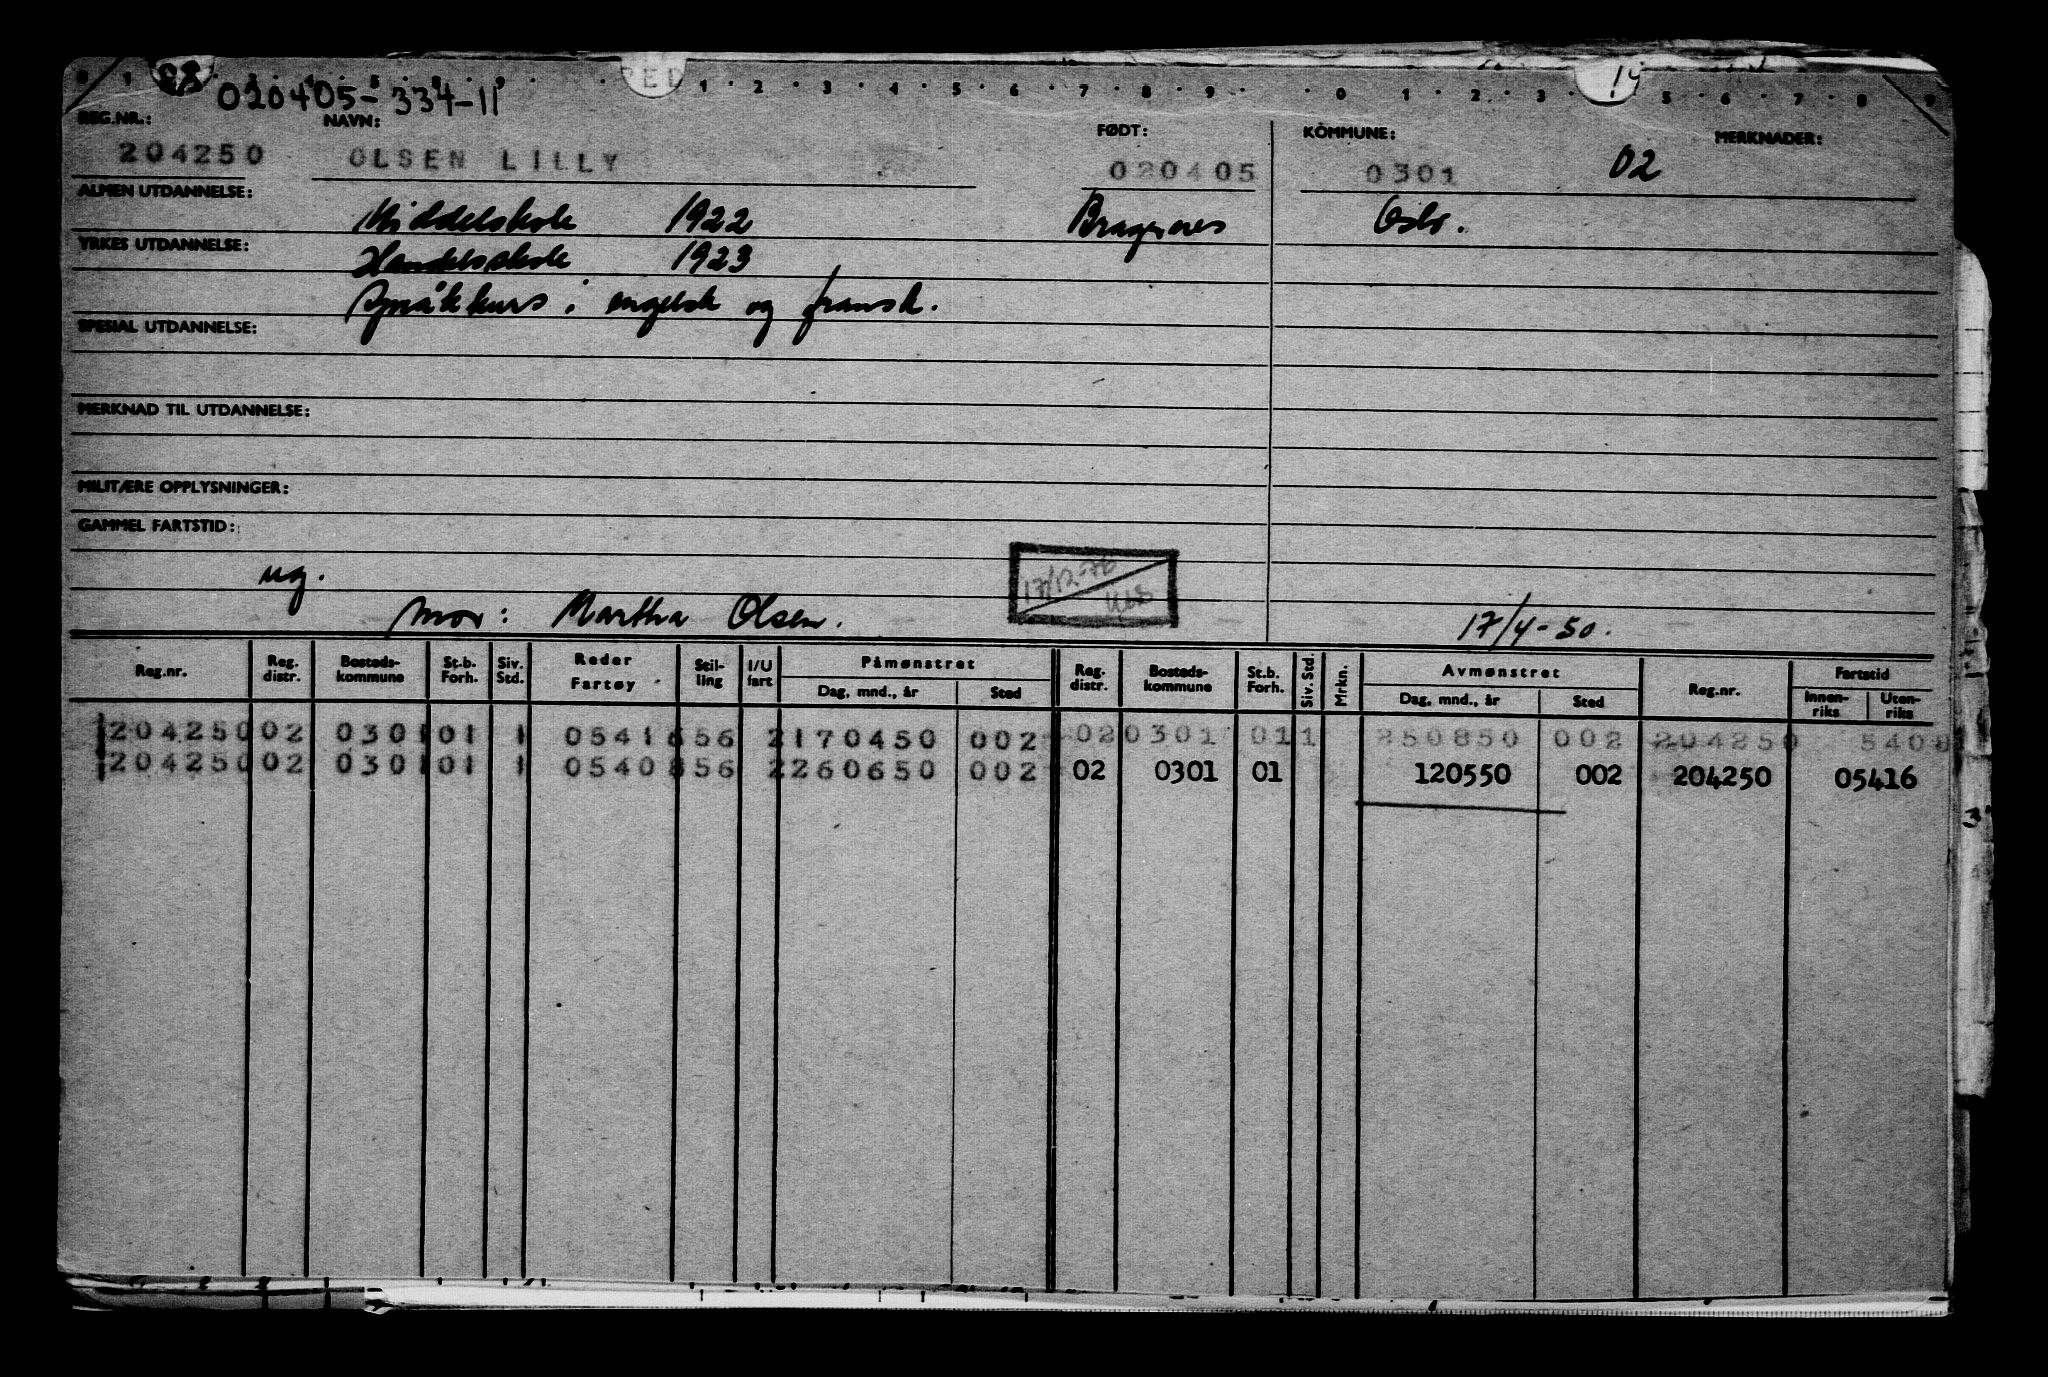 020405-334-11
REG.NR.: NAVN: FØDT: KOMMUNE: MERKNADER:
204250 OLSEN LILLY 020405 0301 02
ALMEN UTDANNELSE: Middelskole 1922 Bragernes Oslo.
YRKES UTDANNELSE: Handelsskole 1923
Språkkurs i engelsk og fransk.
SPESIAL UTDANNELSE:
MERKNAD TIL UTDANNELSE:
MILITÆRE OPPLYSNINGER:
GAMMEL FARTSTID:
ug.
17/12-76
Mor: Martha Olsen. 17/4-50.
Reg.nr. Reg. distr. Bosteds-kommune St.b. Forh. Siv. Std. Reder Fartøy Stil-ling I/U fart Påmønstret Dag, mnd., år Sted Reg. distr. Bosteds-kommune St.b. Forh. Siv. Std. Mrkn. Avmønstret Dag, mnd., år Sted Reg.nr. Fartstid Innen-riks Uten-riks
204250 02 0301 01 1 0541 656 2 170450 002 02 0301 01 1 250850 002 204250 5408
204250 02 0301 01 1 0540 856 2 260650 002 02 0301 01 120550 002 204250 05416